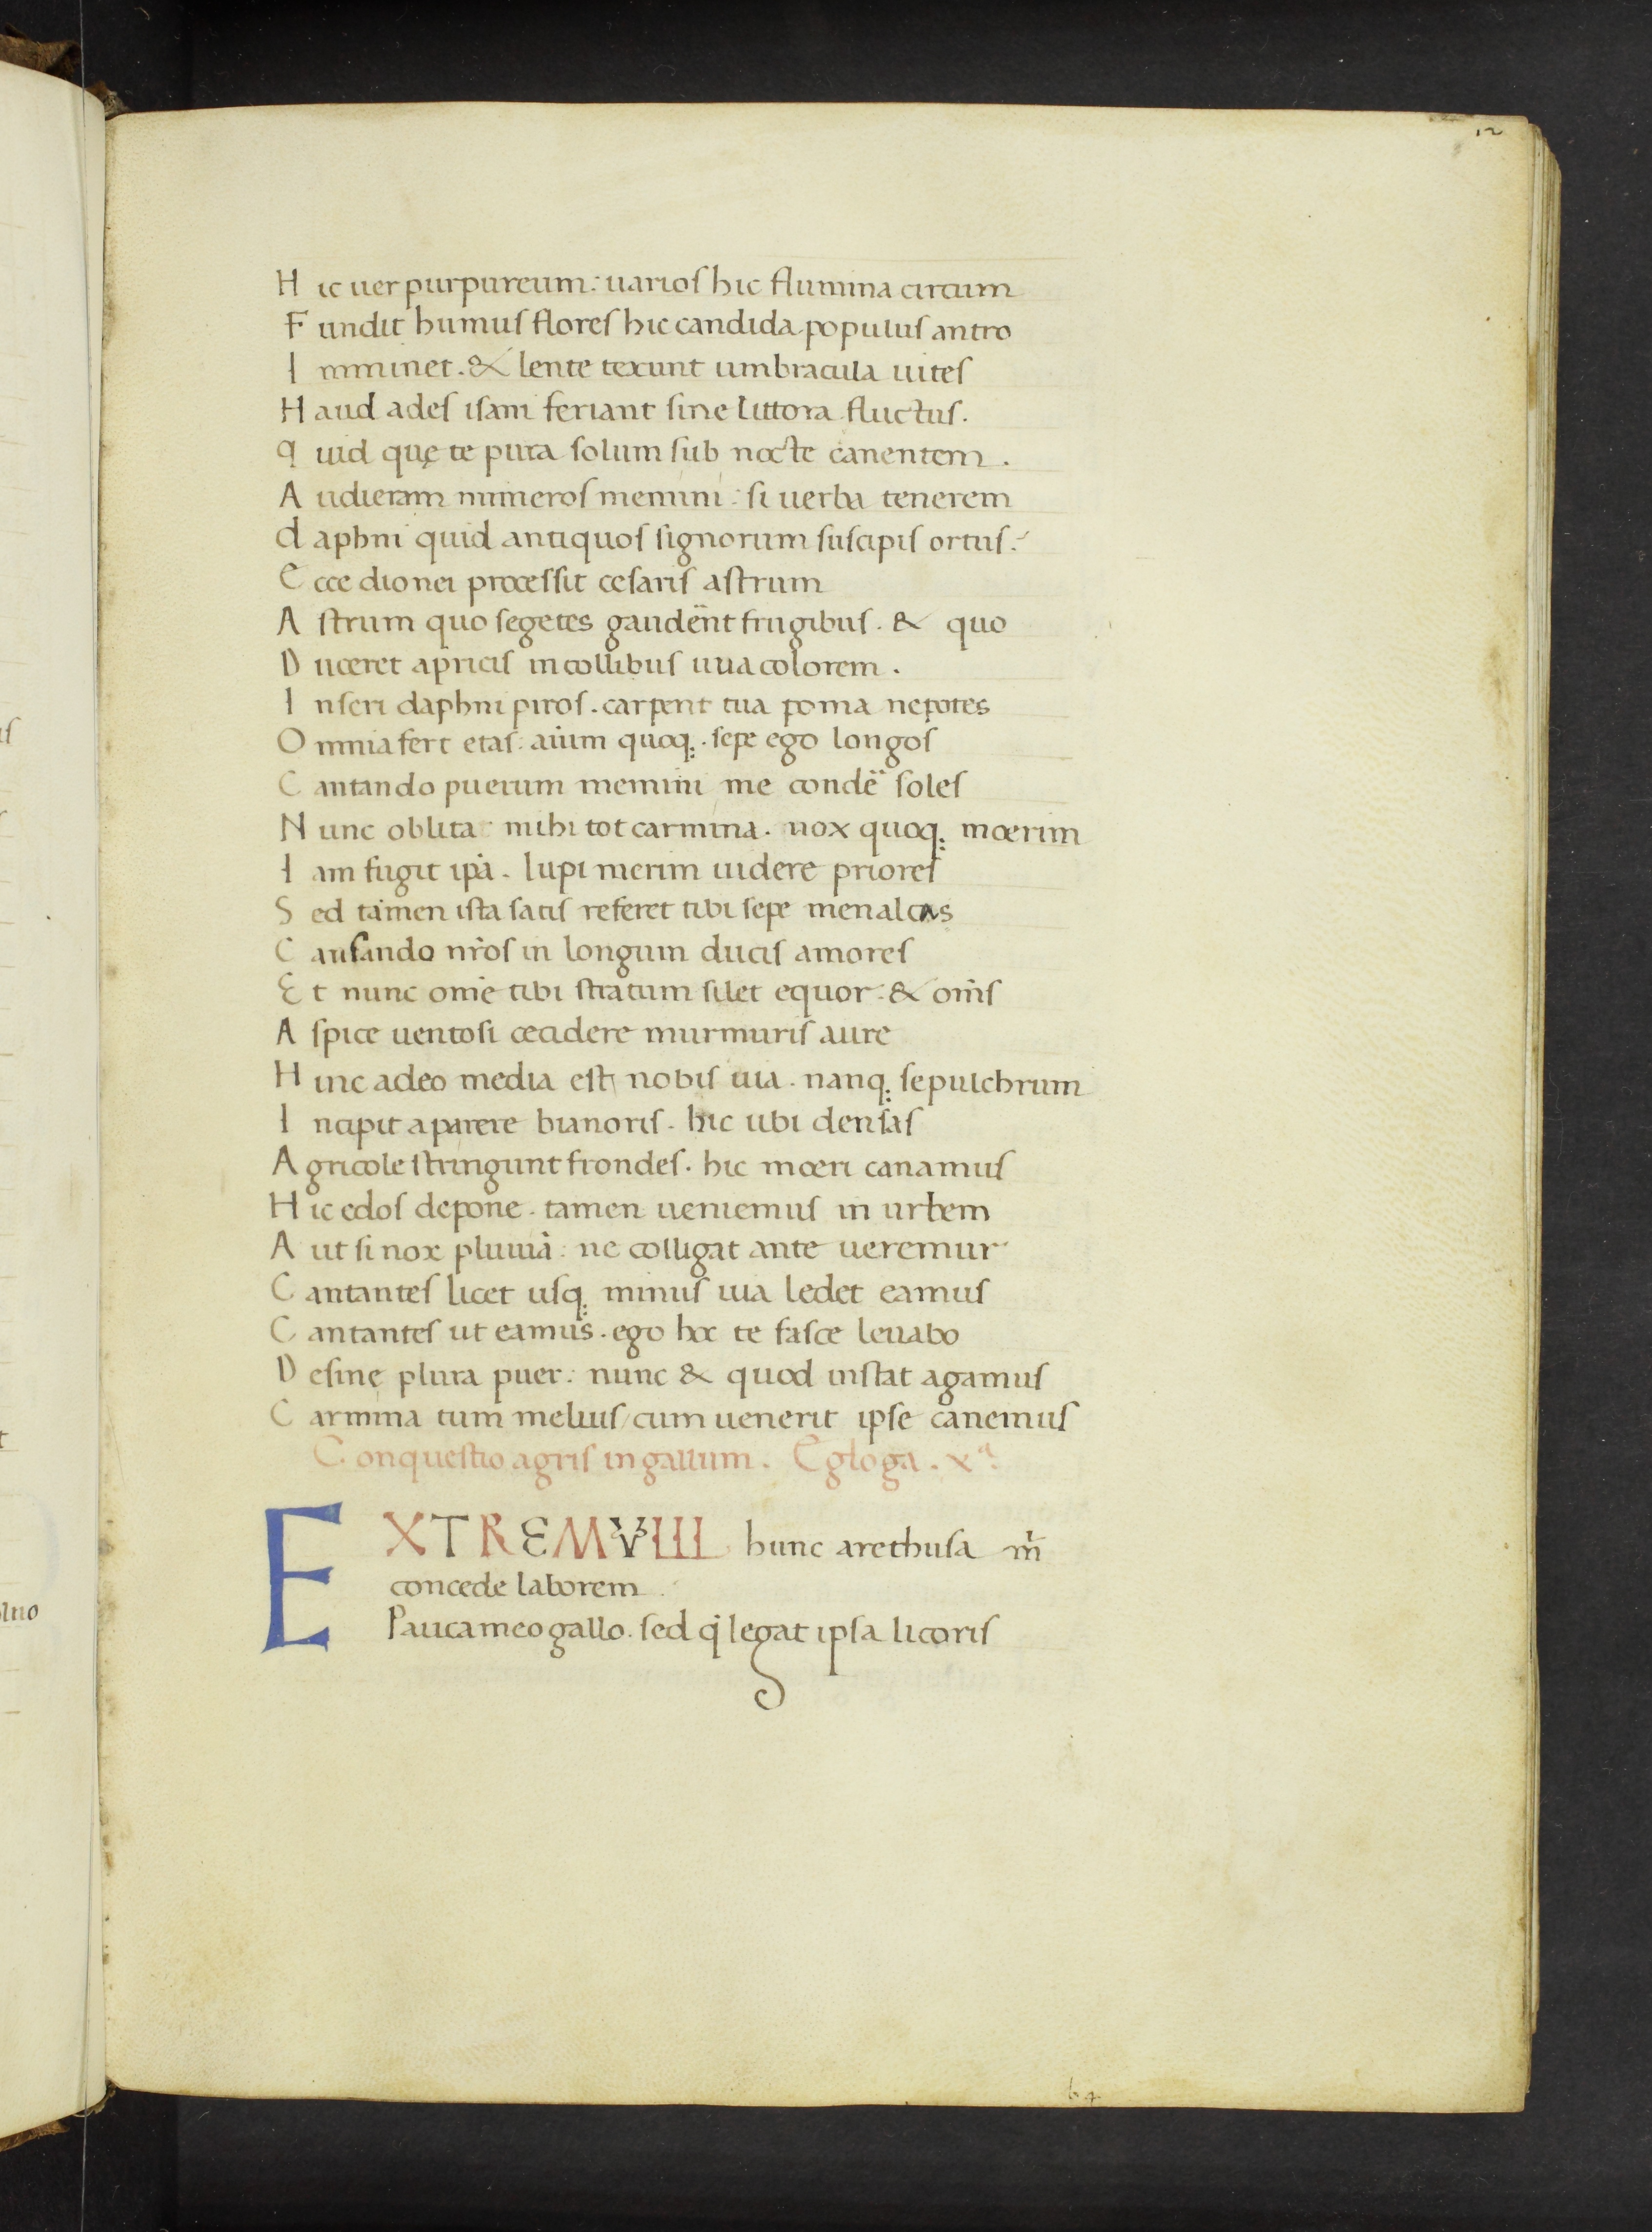 12
H ic uer purpureum : uarios hic flumina circum
F undit humus flores hic candida populus antro
I mminet . & lente texunt umbracula uites
H aud ades isani feriant sine littora fluctus .
q uid quę te pura solum sub nocte canentem .
A udieram numeros memini : si uerba tenerem
d aphni quid antiquos signorum suscipis ortus :
E cce dionei processit cesaris astrum
A strum quo segetes gaudent frugibus . & quo
D uceret apricis in collibus uua colorem .
I nseri daphni piros . carpent tua poma nepotes
O mnia fert etas : aium quoq; . sepe ego longos
C antando puerum memini me conde soles
N unc oblita mihi tot carmina . uox quoq; moerim
I am fugit ipa . lupi merim uidere priores
S ed tamen ista satis referet tibi sepe menalcas
C ausando nros in longum ducis amores
E t nunc ome tibi stratum silet equor : & oms
A spice uentosi cecidere murmuris aure
H inc adeo media est nobis uia . nanq; sepulchrum
I ncipit aparere bianoris . hic ubi densas
A gricole stringunt frondes . hic moeri canamus
H ic edos depone . tamen ueniemus in urbem
A ut si nox pluuia : ne colligat ante ueremur
C antantes licet usq; minus uia ledet eamus
C antantes ut eamus . ego hoc te fasce leuabo
D esine plura puer : nunc & quod instat agamus
C armina tum melius / cum uenerit ipse canemus
Conquestio agris in gallum . Egloga . xa:
EXTREMVM hunc arethusa m
concede laborem
Pauca meo gallo . sed q legat ipsa licoris